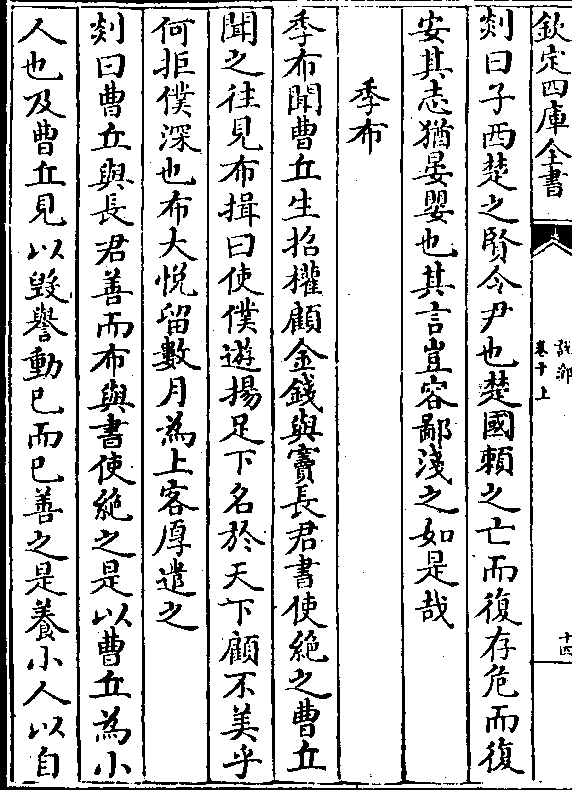 欽定四庫全書
說郛
卷十上
十四
剡曰子西楚之賢令尹也楚國賴之亡而復存危而復
安其志猶晏嬰也其言豈容鄙淺之如是哉
季布
季布聞曹丘生招權顧金錢與竇長君書使絶之曹丘
聞之往見布揖曰使僕遊揚足下名於天下顧不美乎
何拒僕深也布大悦留數月為上客厚遣之
剡曰曹丘與長君善而布與書使絶之是以曹丘為小
人也及曹丘見以毀譽動已而已善之是養小人以自